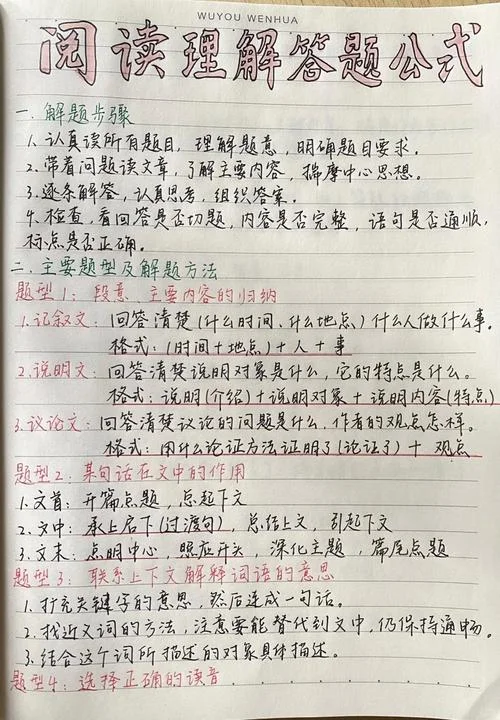 WUYOU WENHUA
阅读理解答题公式
一.解题步骤
1.认真读所有题目，理解题意，明确题目要求。
2.带着问题读文章，了解主要内容，揣摩中心思想。
3.逐条解答，认真思考，组织答案。
4.检查，看回答是否切题，内容是否完整，语句是否通顺，
标点是否正确。
二.主要题型及解题方法
题型1：段意、主要内容的归纳
1.记叙文：回答清楚(什么时间、什么地点)什么人做什么事。
格式：(时间+地点)+人+事
2.说明文：回答清楚说明对象是什么，它的特点是什么。
格式：说明(介绍)+说明对象+说明内容(特点)
3.议论文：回答清楚议论的问题是什么，作者的观点怎样。
格式：用什么论证方法证明了(论证了)+观点
题型2：某句话在文中的作用
1.文首：开篇点题，总起下文
2.文中：承上启下(过渡句)，总结上文，引起下文
3.文末：点明中心，照应开头，深化主题，篇尾点题
题型3：联系上下文解释词语的意思
1.扩充关键字的意思，然后连成一句话。
2.找近义词的方法，注意要能替代到文中，仍保持通畅。
3.结合这个词所描述的对象具体描述。
题型4：选择正确的读音